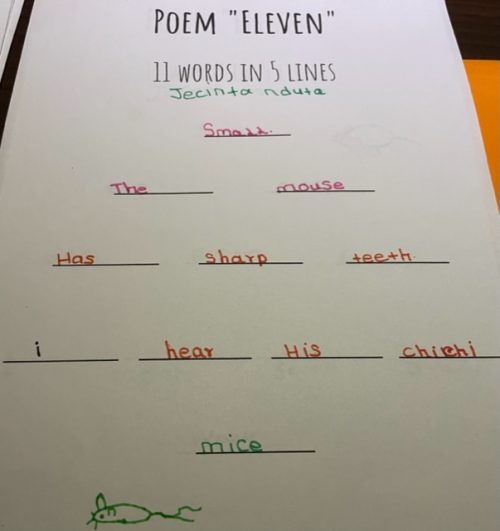 POEM "ELEVEN"
11 WORDS IN 5 LINES
Jecinta nduta
Small.
The mouse
Has sharp teeth.
i hear His chichi
mice